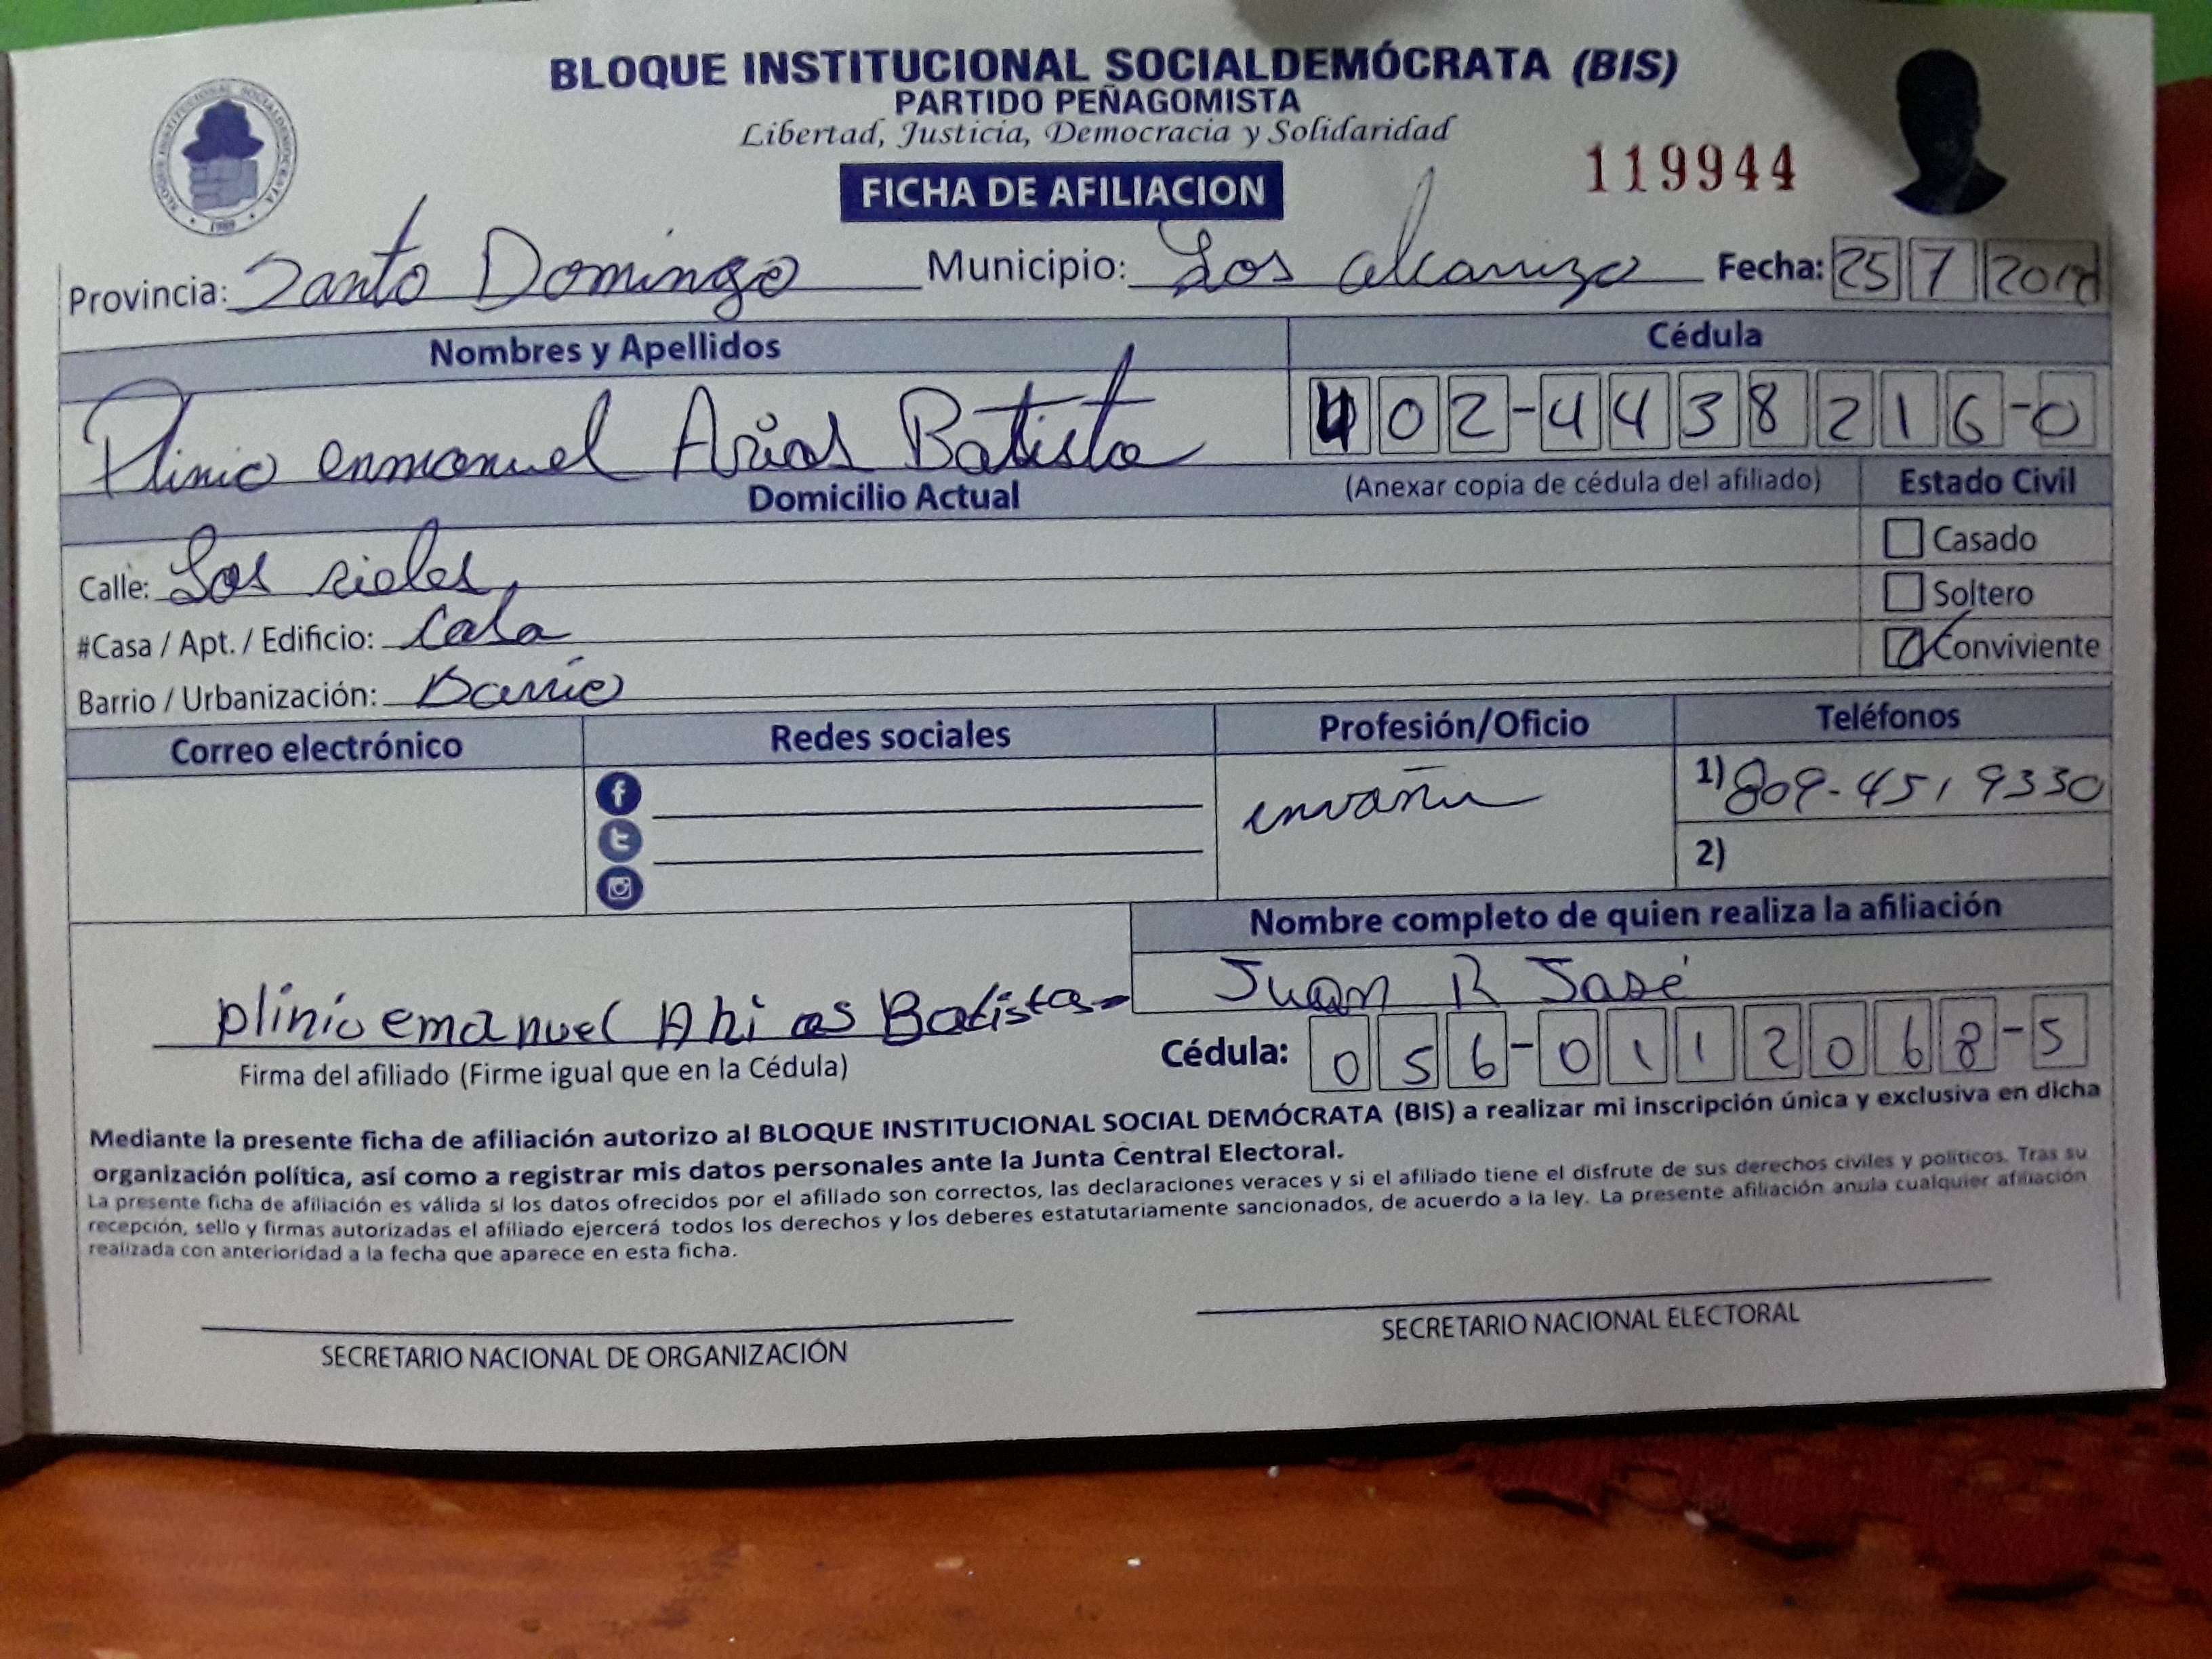 BLOQUE INSTITUCIONAL SOCIALDEMÓCRATA (BIS)
PARTIDO PEÑAGOMISTA
Libertad, Justicia, Democracia y Solidaridad
FICHA DE AFILIACION
119944
BLOQUE INSTITUCIONAL SOCIALDEMOCRATA
Provincia: Santo Domingo Municipio: Los alcarrizo Fecha: 25 7
Nombres y Apellidos Cédula
Plinio enmanuel Arias Batista 402-4438216-0
Domicilio Actual (Anexar copia de cédula del afiliado) Estado Civil
Casado
Calle: Los rieles
Soltero
#Casa / Apt. / Edificio: Casa
Conviviente
Barrio / Urbanización: Barrio
Correo electrónico Redes sociales Profesión/Oficio Teléfonos
1) 809-451 9330
2)
Nombre completo de quien realiza la afiliación
Juan R José
plinio emanuel Ahi as Batista
Cédula: 056-0112068-5
Firma del afiliado (Firme igual que en la Cédula)
Mediante la presente ficha de afiliación autorizo al BLOQUE INSTITUCIONAL SOCIAL DEMÓCRATA (BIS) a realizar mi inscripción única y exclusiva en dicha
organización política, así como a registrar mis datos personales ante la Junta Central Electoral.
La presente ficha de afiliación es válida si los datos ofrecidos por el afiliado son correctos, las declaraciones veraces y si el afiliado tiene el disfrute de sus derechos civiles y políticos. Tras su
recepción, sello y firmas autorizadas el afiliado ejercerá todos los derechos y los deberes estatutariamente sancionados, de acuerdo a la ley. La presente afiliación anula cualquier afiliación
realizada con anterioridad a la fecha que aparece en esta ficha.
SECRETARIO NACIONAL DE ORGANIZACIÓN
SECRETARIO NACIONAL ELECTORAL